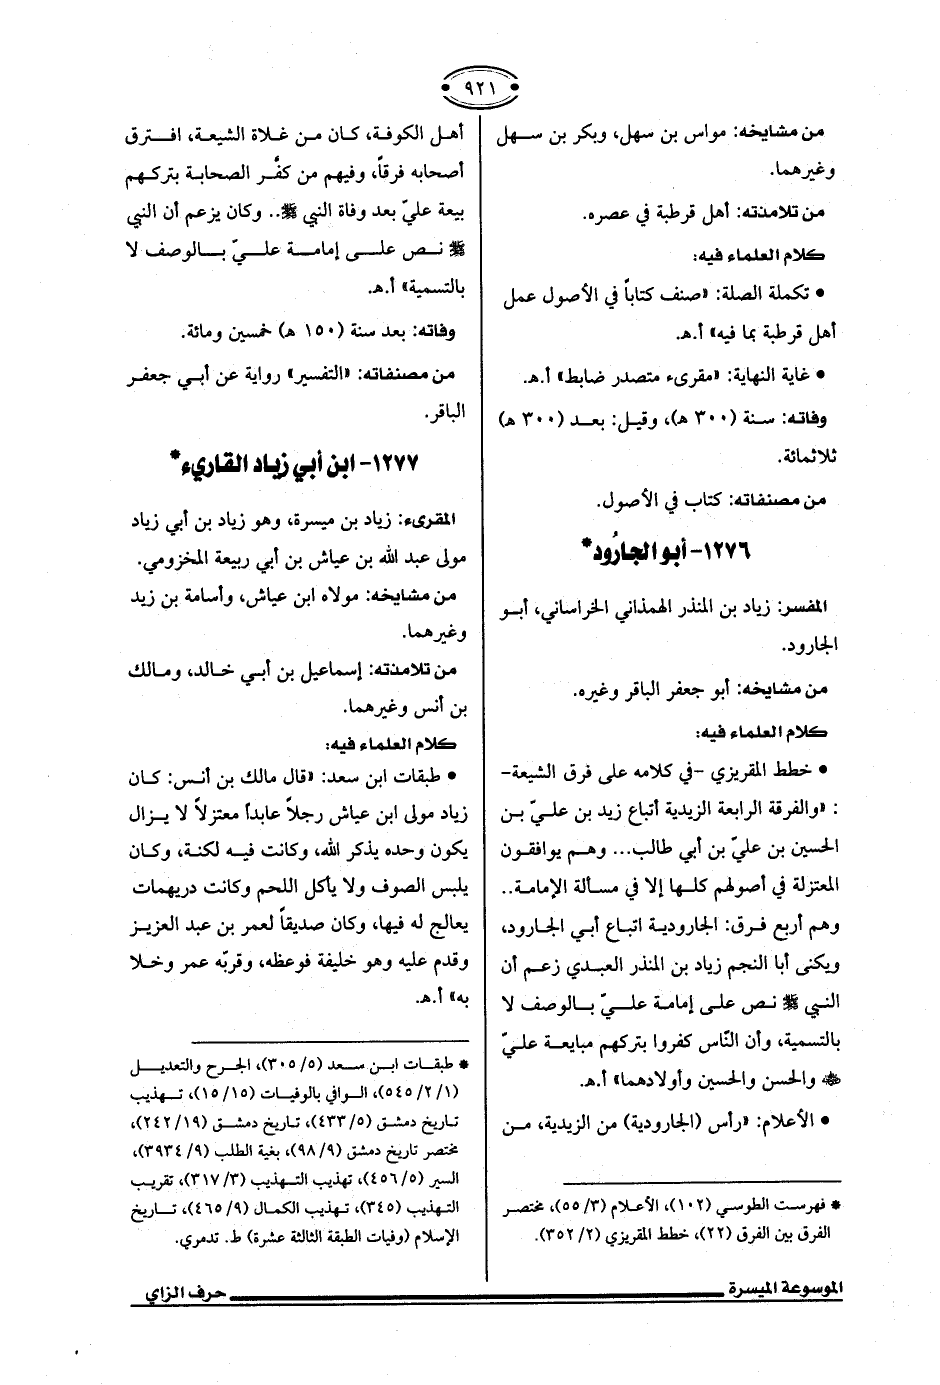 ٩٢١
من مشايخه: مواس بن سهل، وبكر بن سهل
وغيرهما.
من تلامذته: أهل قرطبة في عصره.
كلام العلماء فيه:
• تكملة الصلة: «صنف كتاباً في الأصول عمل
أهل قرطبة بما فيه» أ.هـ.
• غاية النهاية: «مقرىء متصدر ضابط» أ.هـ.
وفاته: سنة (٣٠٠ هـ)، وقيل: بعد (٣٠٠ هـ)
ثلاثمائة.
من مصنفاته: كتاب في الأصول.
١٢٧٦- أبو الجارُود*
المفسر: زياد بن المنذر الهمذاني الخراساني، أبو
الجارود.
من مشايخه: أبو جعفر الباقر وغيره.
كلام العلماء فيه:
• خطط المقريزي -في كلامه على فرق الشيعة-
: «والفرقة الرابعة الزيدية أتباع زيد بن عليّ بن
الحسين بن عليّ بن أبي طالب... وهم يوافقون
المعتزلة في أصولهم كلها إلا في مسألة الإمامة..
وهم أربع فرق: الجارودية اتباع أبي الجارود،
ويكنى أبا النجم زياد بن المنذر العبدي زعم أن
النبي ﷺ نص على إمامة عليّ بالوصف لا
بالتسمية، وأن النّاس كفروا بتركهم مبايعة عليّ
والحسن والحسين وأولادهما» أ.هـ.
• الأعلام: «رأس (الجارودية) من الزيدية، من
* فهرست الطوسي (١٠٢)، الأعلام (٣/ ٥٥)، مختصر
الفرق بين الفرق (٢٢)، خطط المقريزي (٢/ ٣٥٢).
أهل الكوفة، كان من غلاة الشيعة، افترق
أصحابه فرقاً، وفيهم من كفَّر الصحابة بتركهم
بيعة عليّ بعد وفاة النبي ﷺ.. وكان يزعم أن النبي
ﷺ نص على إمامة عليّ بالوصف لا
بالتسمية» أ.هـ.
وفاته: بعد سنة (١٥٠ هـ) خمسين ومائة.
من مصنفاته: «التفسير» رواية عن أبي جعفر
الباقر.
١٢٧٧- ابن أبي زياد القاريء*
المقرىء: زياد بن ميسرة، وهو زياد بن أبي زياد
مولى عبد الله بن عياش بن أبي ربيعة المخزومي.
من مشايخه: مولاه ابن عياش، وأسامة بن زيد
وغيرهما.
من تلامذته: إسماعيل بن أبي خالد، ومالك
بن أنس وغيرهما.
كلام العلماء فيه:
• طبقات ابن سعد: «قال مالك بن أنس: كان
زياد مولى ابن عياش رجلاً عابداً معتزلاً لا يزال
يكون وحده يذكر الله، وكانت فيه لكنة، وكان
يلبس الصوف ولا يأكل اللحم وكانت دريهمات
يعالج له فيها، وكان صديقاً لعمر بن عبد العزيز
وقدم عليه وهو خليفة فوعظه، وقربّه عمر وخلا
به» أ.هـ.
* طبقات ابن سعد (٥/ ٣٠٥)، الجرح والتعديل
(١/ ٢/ ٥٤٥)، الوافي بالوفيات (١٥/ ١٥)، تهذيب
تاريخ دمشق (٥/ ٤٣٣)، تاريخ دمشق (١٩/ ٢٤٢)،
مختصر تاريخ دمشق (٩/ ٩٨)، بغية الطلب (٩/ ٣٩٣٤)،
السير (٥/ ٤٥٦)، تهذيب التهذيب (٣/ ٣١٧)، تقريب
التهذيب (٣٤٥)، تهذيب الكمال (٩/ ٤٦٥)، تاريخ
الإسلام (وفيات الطبقة الثالثة عشرة) ط. تدمري.
الموسوعة الميسرة
حرف الزاي